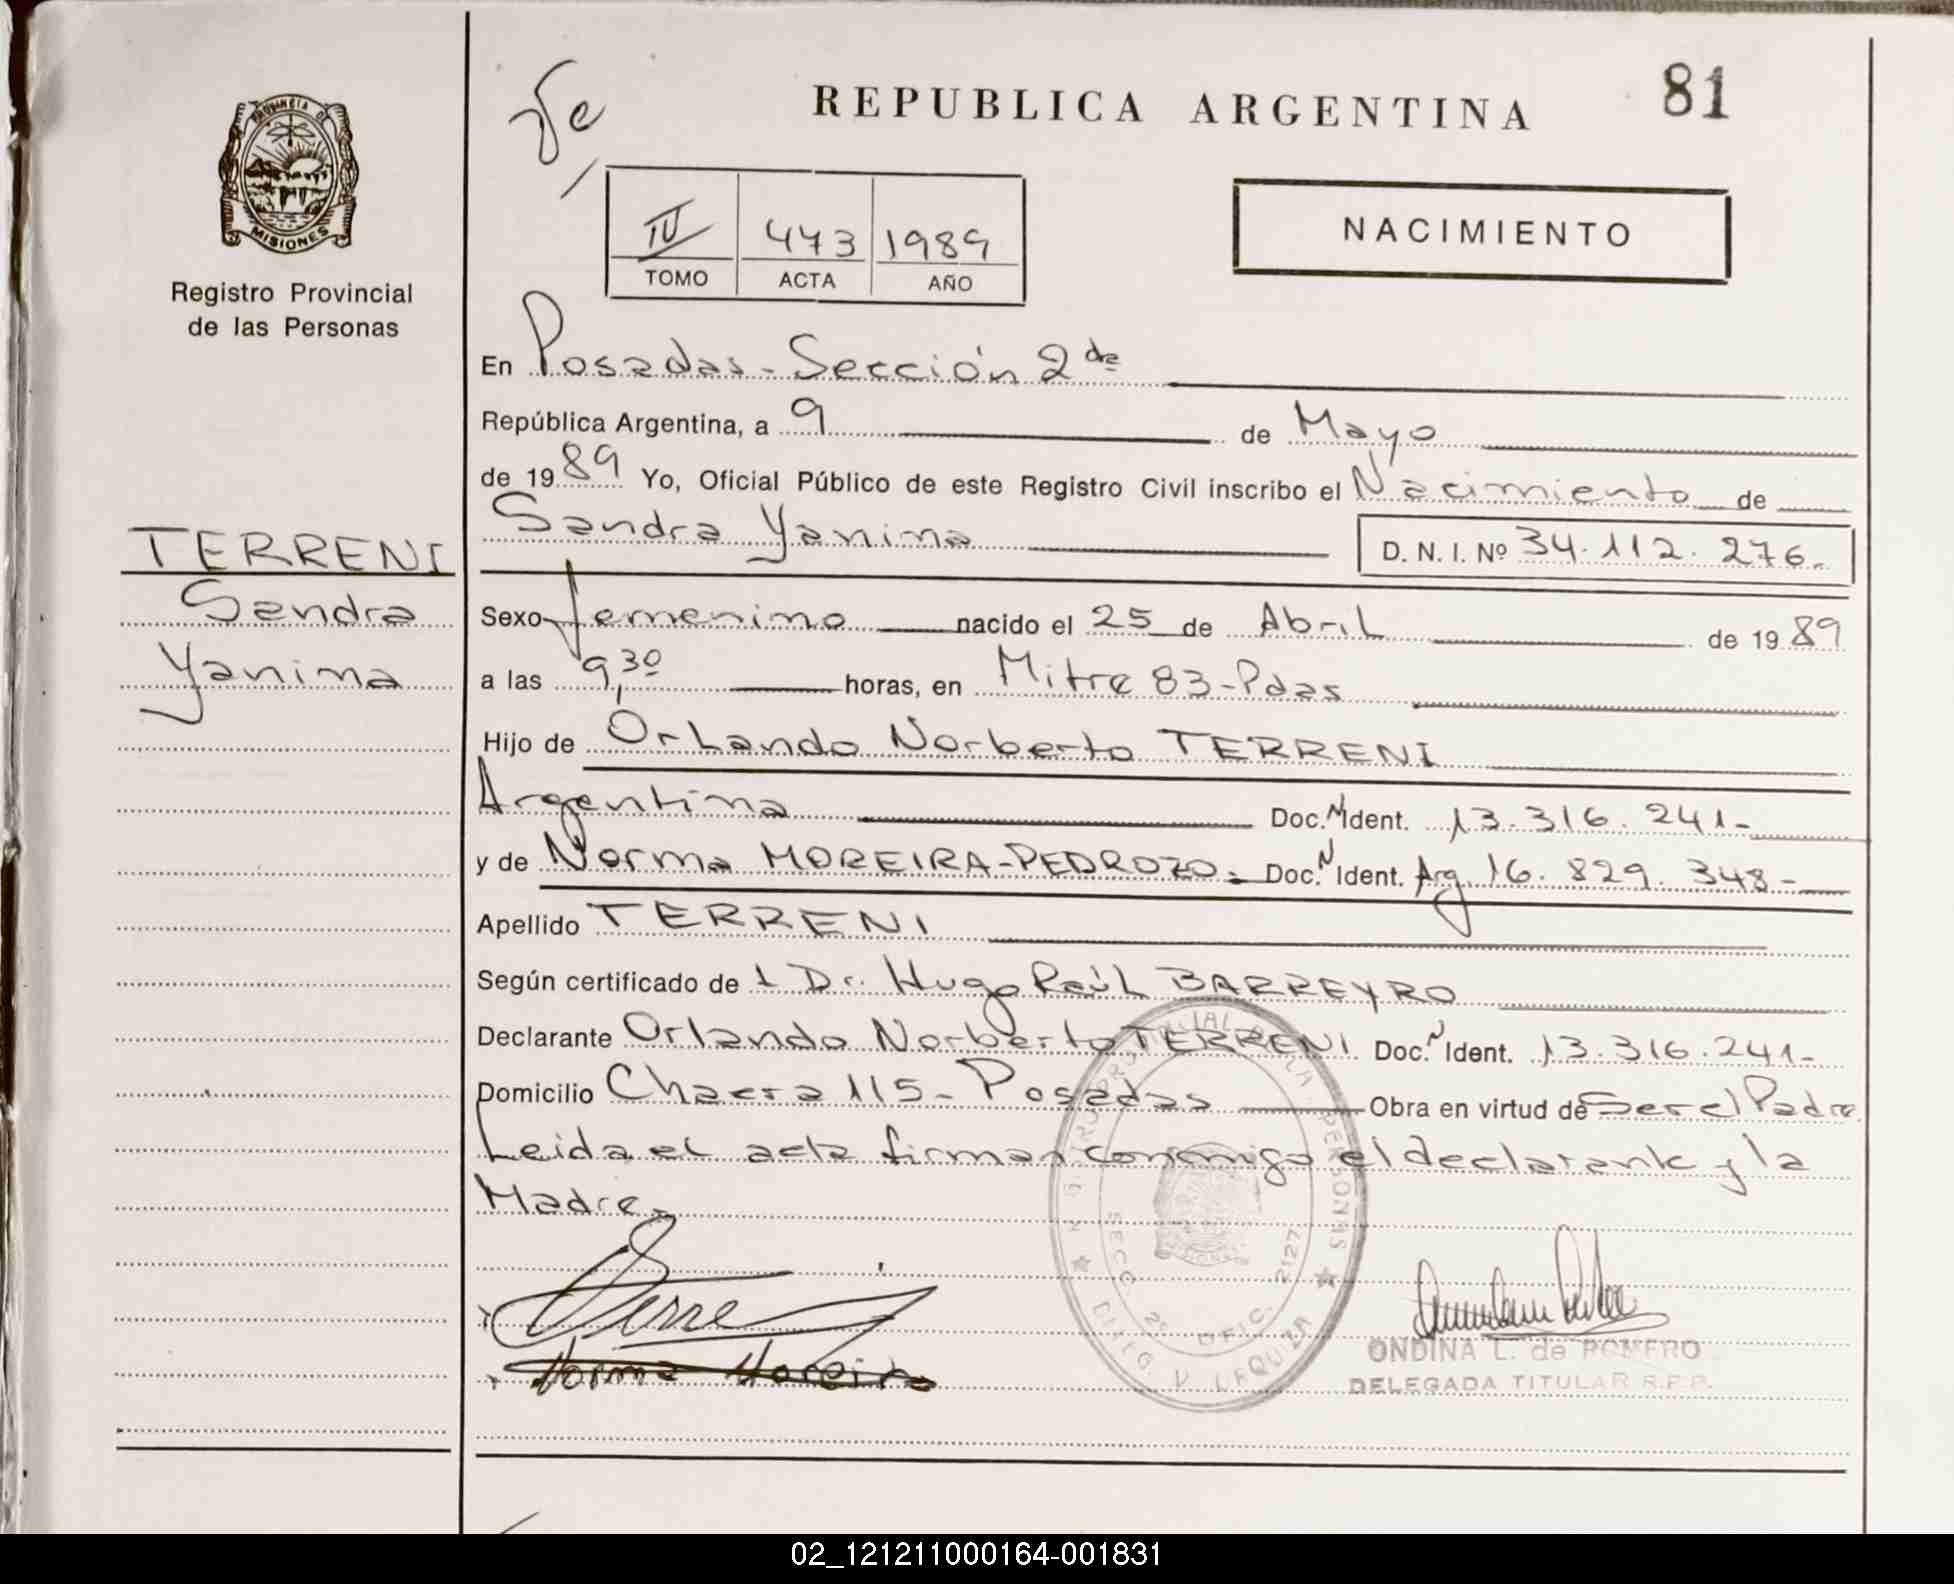 REPUBLICA ARGENTINA
81
PROVINCIA DE
MISIONES
Registro Provincial
de las Personas
IV 473 1989
TOMO ACTA AÑO
NACIMIENTO
En Posadas - Sección 2da
República Argentina, a 9 de Mayo
de 1989 Yo, Oficial Público de este Registro Civil inscribo el Nacimiento de
Sandra Yanina D. N. I. Nº 34.112.276.-
TERRENI
Sandra
Yanina
Sexo femenino nacido el 25 de Abril de 1989
a las 9,30 horas, en Mitre 83 - Pdas
Hijo de Orlando Norberto TERRENI
Argentina Doc. N Ident. 13.316.241-
y de Norma MOREIRA - PEDROZO.- Doc. N Ident. Arg 16.829.348-
Apellido TERRENI
Según certificado de 1 Dr. Hugo Raúl BARREYRO
Declarante Orlando Norberto TERRENI Doc. N Ident. 13.316.241-
Domicilio Chacra 115 - Posadas Obra en virtud de Ser el Padre
Leida el acta firman conmigo el declarante y la
Madre.-
Norma Moreira
SECC. 2º OFIC. 2127
ONDINA L. de ROMERO
DELEGADA TITULAR R.P.P.
02_121211000164-001831